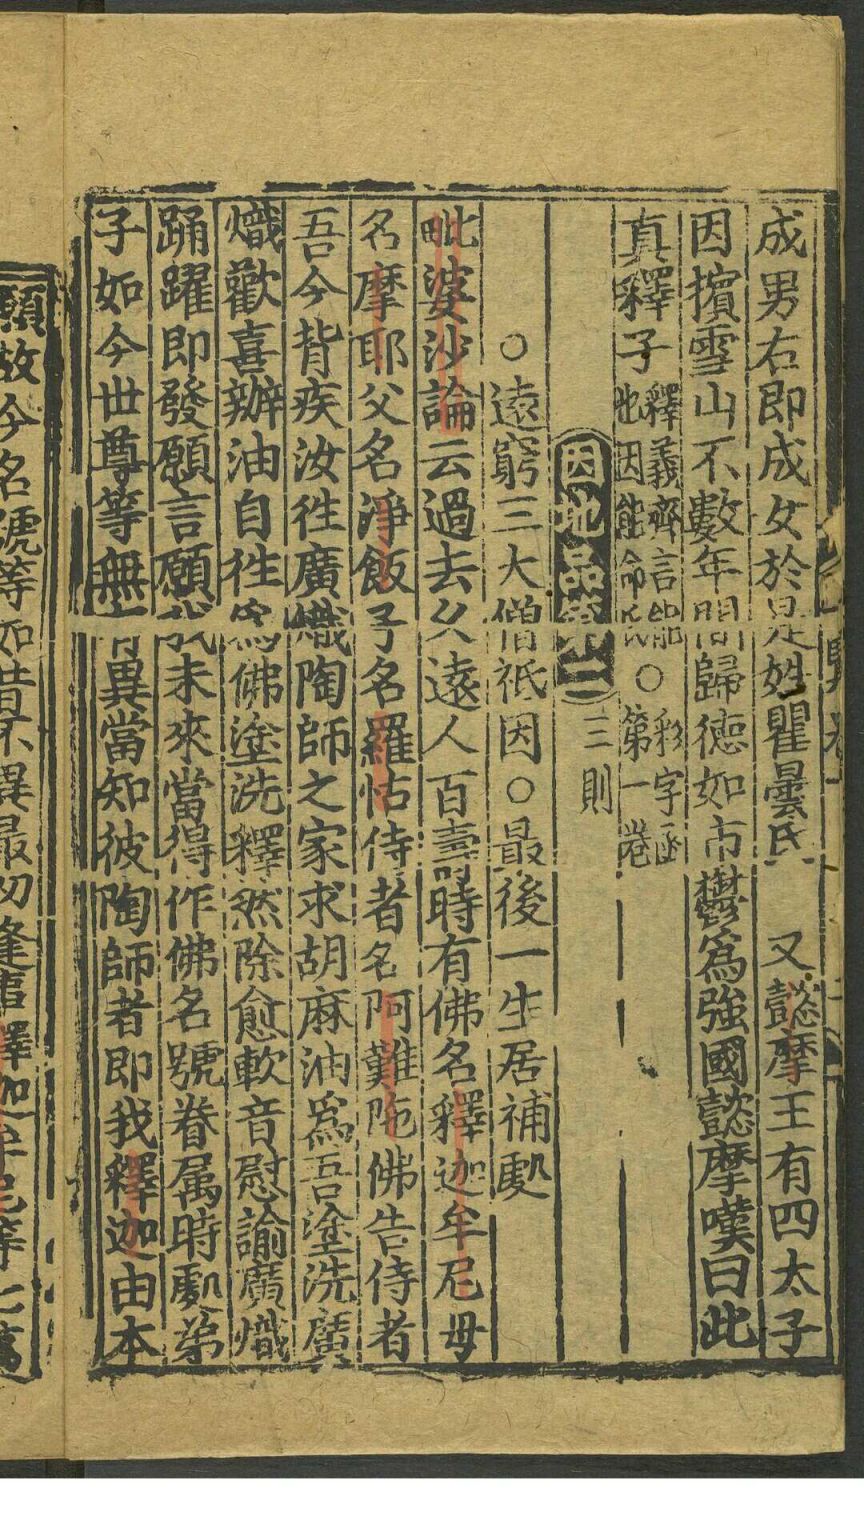 成男右即成女於是姓瞿曇氏　又懿摩王有四太子
因擯雪山不數年間歸德如市鬱為強國懿摩嘆曰此
真釋子釋義齊言能也因能命氏○彩字函第一卷
因地品第二三則
○遠窮三大僧祇因○最後一生居補處
毗婆沙論云過去久遠人百壽時有佛名釋迦牟尼母
名摩耶父名淨飯子名羅怙侍者名阿難陁佛告侍者
吾今背疾汝徃廣熾陶師之家求胡麻油為吾塗洗廣
熾歡喜辦油自徃為佛塗洗釋然除愈軟音慰諭廣熾
踊躍即發願言願我未來當得作佛名號眷属時處弟
子如今世尊等無有異當知彼陶師者即我釋迦由本
願故今名號等如昔不異最初逢舊釋迦牟尼等七萬